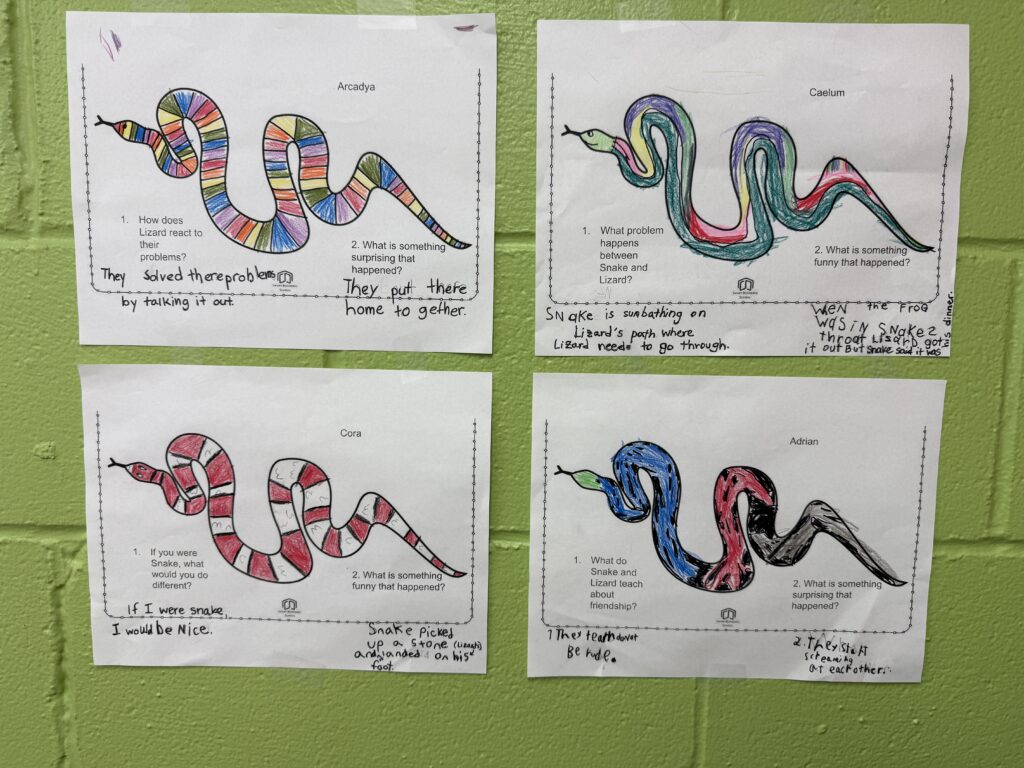 Arcadya
1. How does
Lizard react to
their
problems?
They solved thereproblems
by talking it out.
2. What is something
surprising that
happened?
They put there
home to gether.
Caelum
1. What problem
happens
between
Snake and
Lizard?
SNake is sunbathing on
Lizard's path where
Lizard needs to go through.
2. What is something
funny that happened?
WeN the FroG
was iN SNake2
throat Lizard got
it out But snake said it was
his dinner.
Cora
1. If you were
Snake, what
would you do
different?
If I were snake,
I would be Nice.
2. What is something
funny that happened?
Snake Picked
up a stone
and landed on his
foot.
Adrian
1. What do
Snake and
Lizard teach
about
friendship?
1 They teach do not
Be rude.
2. What is something
surprising that
happened?
2. They start
screaming
at each other.